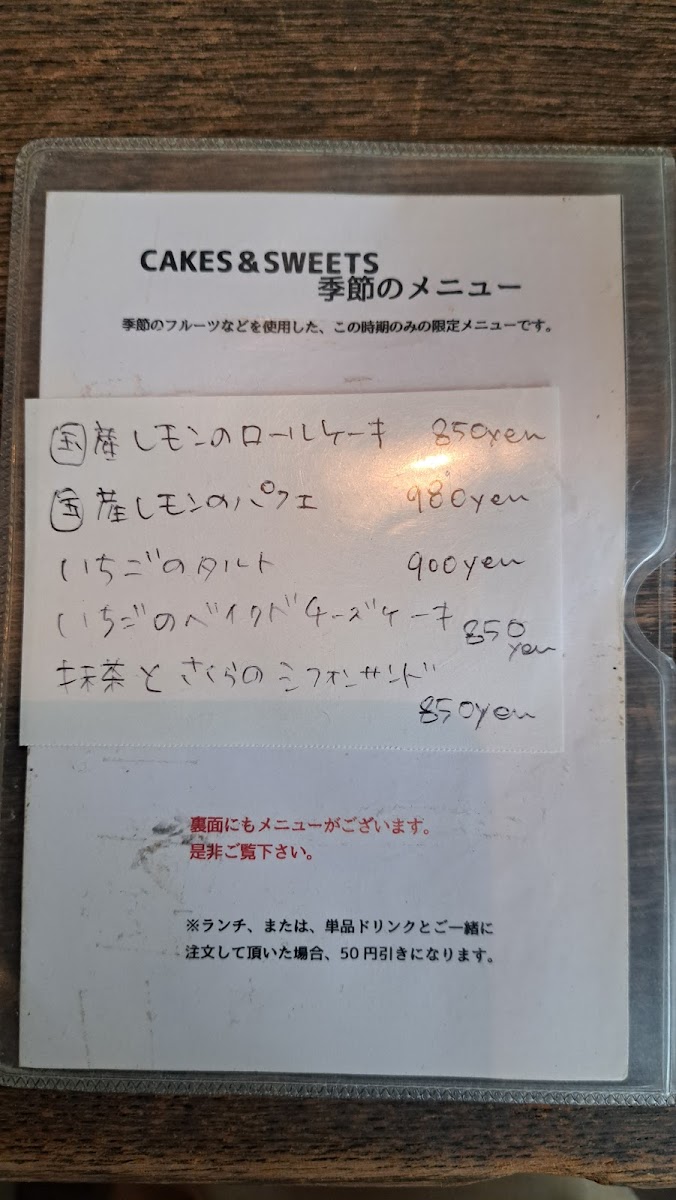 CAKES&SWEETS
季節のメニュー
季節のフルーツなどを使用した、この時期のみの限定メニューです。
国産レモンのロールケーキ 850yen
国産レモンのパフェ 980yen
いちごのタルト 900yen
いちごのベイクドチーズケーキ 850yen
抹茶とさくらのシフォンサンド
850yen
裏面にもメニューがございます。
是非ご覧下さい。
※ランチ、または、単品ドリンクとご一緒に
注文して頂いた場合、50円引きになります。